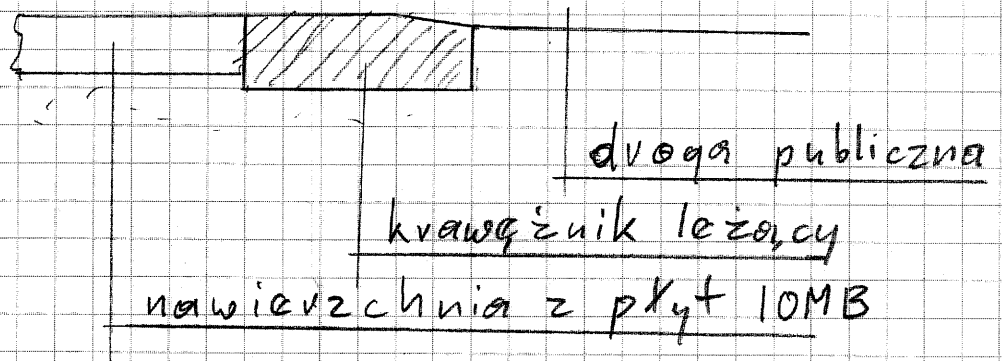 droga publiczna
krawężnik leżący
nawierzchnia z płyt IOMB